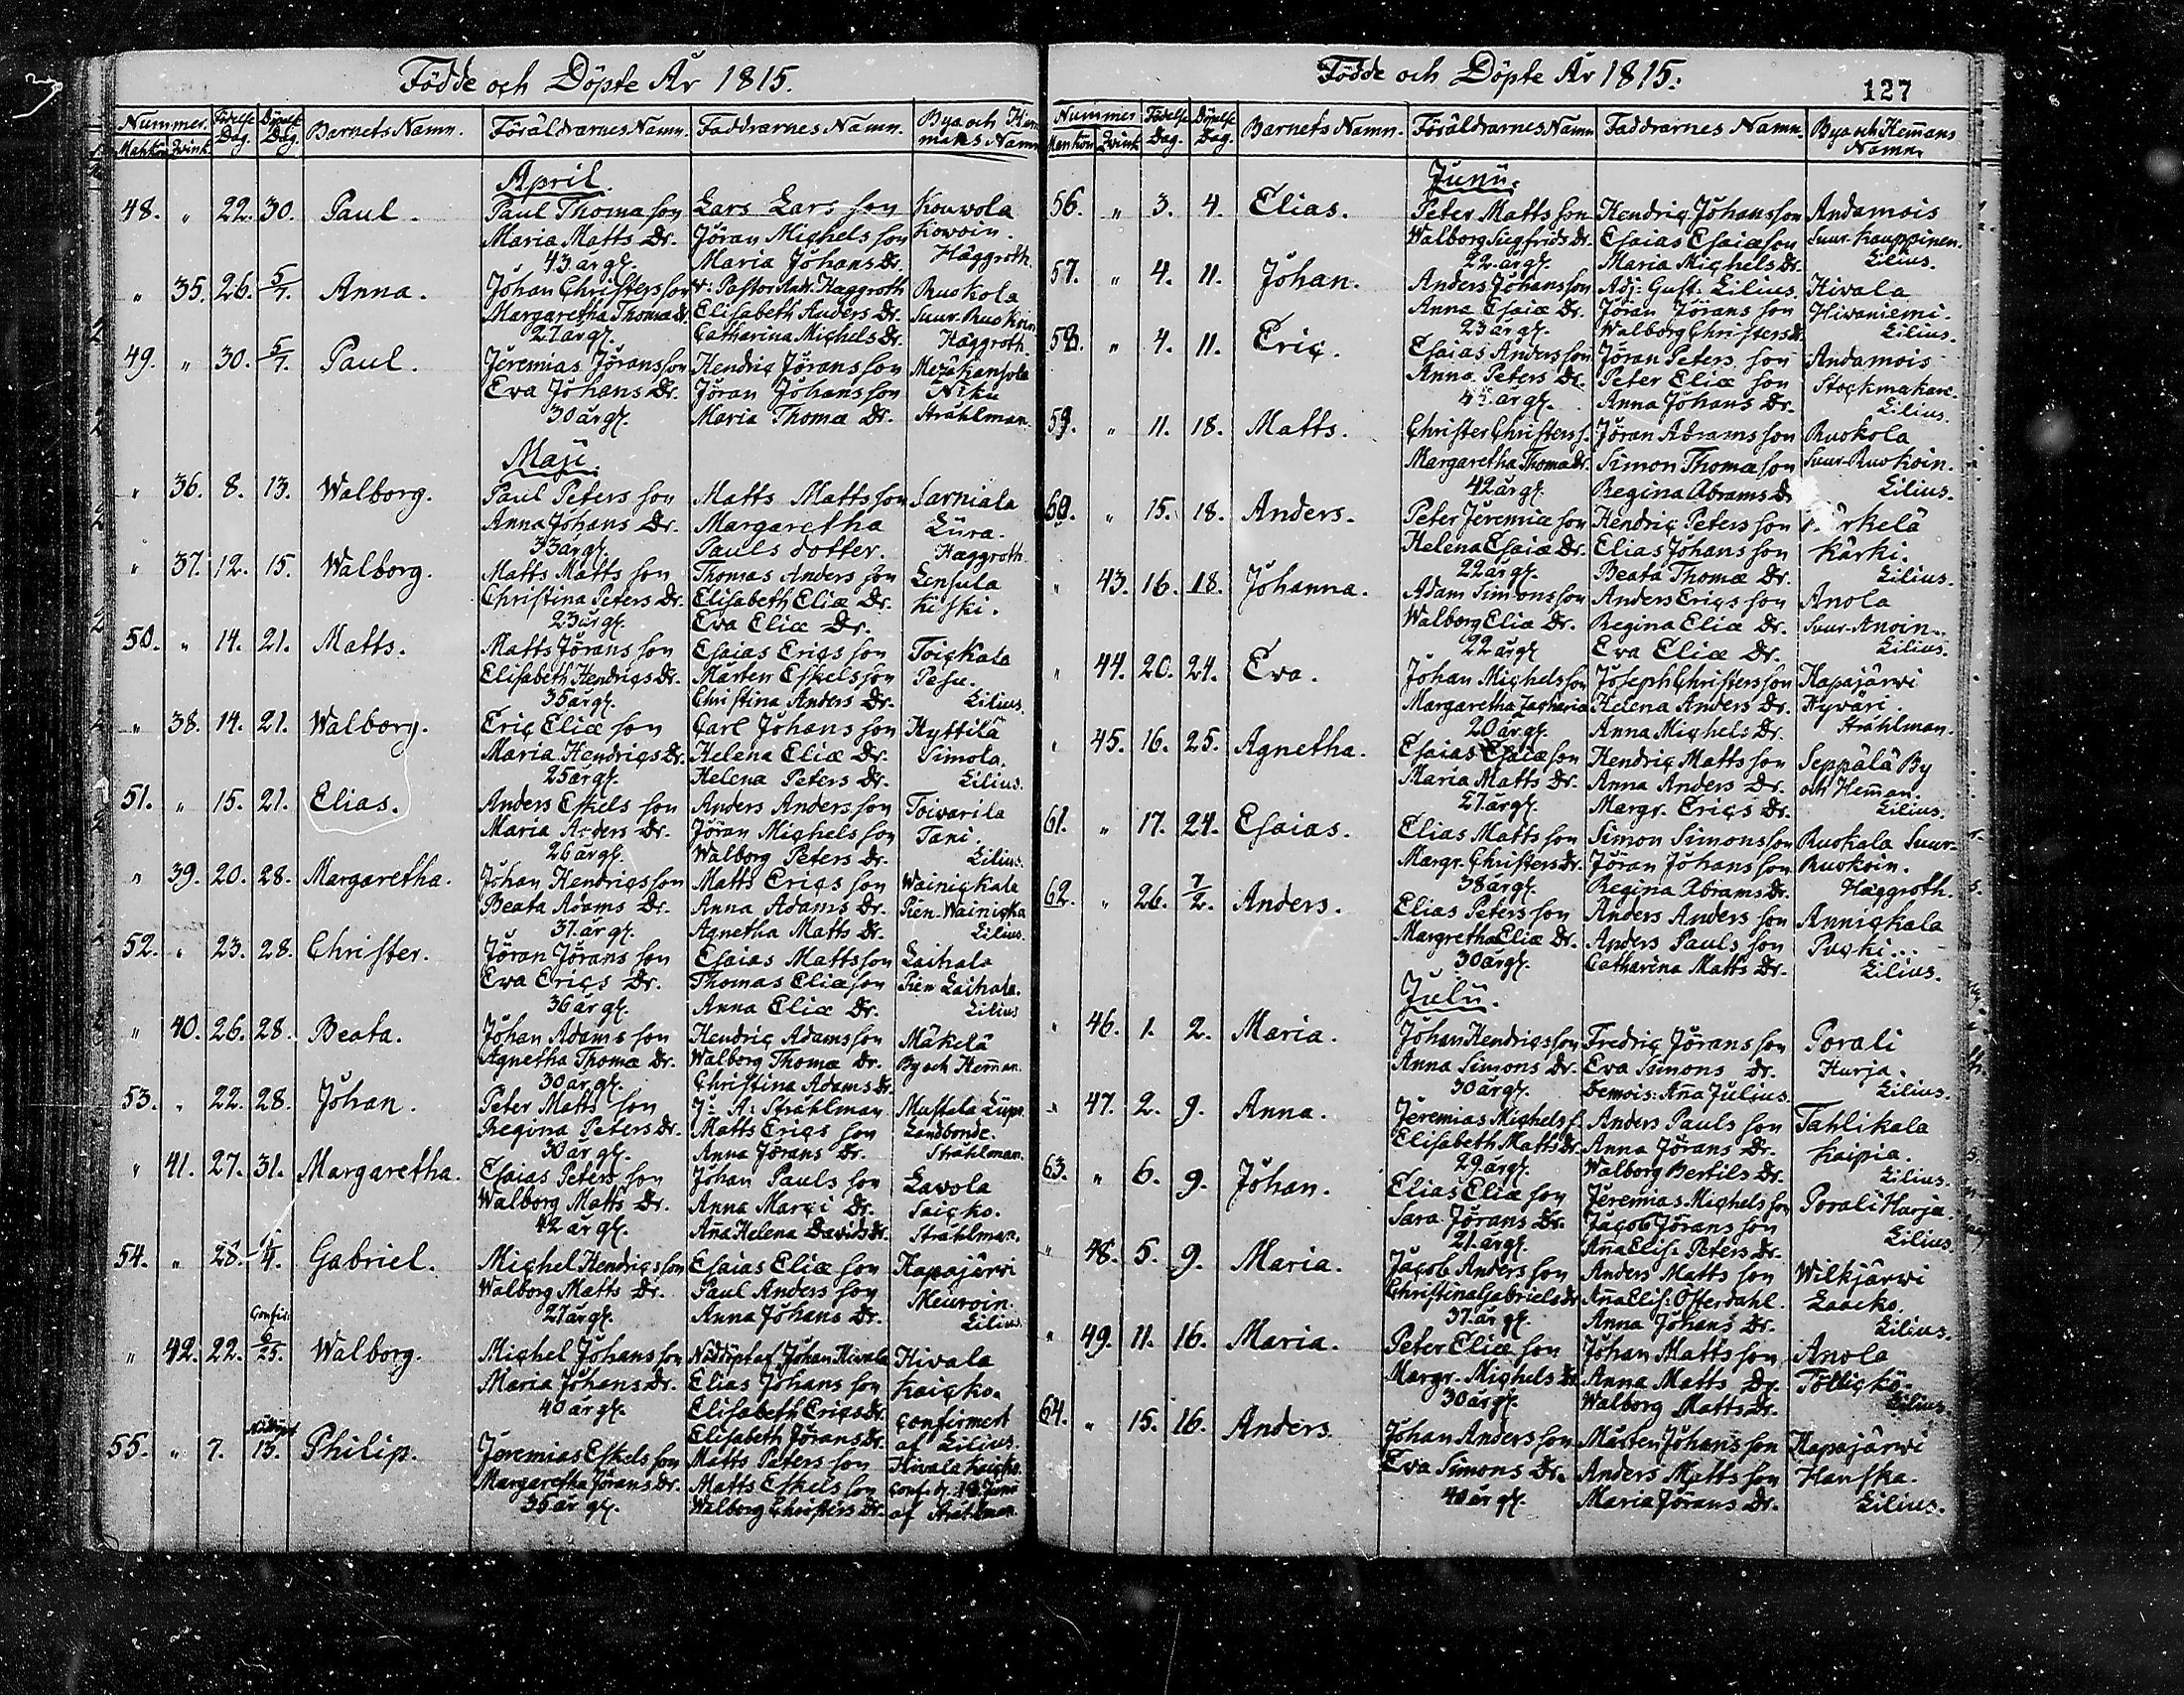 Födde och Döpte År 1815.
Nummer. Födelse Dag. Döpelse Dag. Barnets Namn. Föräldrarnes Namn. Faddrarnes Namn. Bya och Hem
Mankön Qvink. mans Namn
April.
48. " 22. 30. Paul. Paul Thomason Lars Lars son Kouvola
Maria Matts Dr. Jöran Michels son Kowoin.
43 år gl. Maria Johans Dr. Häggroth.
" 35. 26. 5/7. Anna. Johan Christersson v: Pastor Haeggroth Ruokola
Margaretha Thomæ Dr. Elisabeth Anders Dr. Suur Ruokoin
27 år gl. Catharina Michels Dr. Häggroth.
49. " 30. 5/7. Paul. Jeremias Jöransson Hendric Jörans son Mezäkansola
Eva Johans Dr. Jöran Johansson Niku
30 år gl. Maria Thomæ Dr. Strählman.
Maji.
" 36. 8. 13. Walborg. Paul Peters son Matts Matts son Sarniala
Anna Johans Dr. Margaretha Lura.
33 år gl. Pauls dotter. Haeggroth.
" 37. 12. 15. Walborg. Matts Matts son Thomas Anders son Lensula
Christina Peters Dr. Elisabeth Eliæ Dr. Kiski.
23 år gl. Eva Eliæ Dr.
50. " 14. 21. Matts. Matts Jörans son Esaias Erics son Toickala
Elisabeth Hendrics Dr. Mårten Eskelsson Pasu.
35 år gl. Christina Anders Dr. Lilius.
" 38. 14. 21. Walborg. Eric Eliæ son Carl Johans son Hyttilä
Maria Hendrics Dr. Helena Eliæ Dr. Simola.
25 år gl. Helena Peters Dr. Lilius.
51. " 15. 21. Elias. Anders Eskels son Anders Anders son Toivarila
Maria Anders Dr. Jöran Michels son Tani.
26 år gl. Walborg Peters Dr. Lilius.
" 39. 20. 28. Margaretha. Johan Hendricsson Matts Erics son Wainickala
Beata Adams Dr. Anna Adams Dr. Pien-Wainicka
37. år gl. Agnetha Matts Dr. Lilius.
52. " 23. 28. Christer. Jöran Jörans son Esaias Mattsson Laihala
Eva Erics Dr. Thomas Eliæson Pien Laihala.
36 år gl. Anna Eliæ Dr. Lilius
" 40. 26. 28. Beata. Johan Adams son Hendric Adamsson Mäkelä
Agnetha Thomæ Dr. Walborg Thomæ Dr. By och Hem̄an.
30 år gl. Christina Adams Dr.
53. " 22. 28. Johan. Peter Matts son J: A: Strählman Mustala Lups.
Regina Peters Dr. Matts Erics son Landbonde.
30 år gl. Anna Jörans Dr. Strählman.
" 41. 27. 31. Margaretha. Esaias Peters son Johan Pauls son Lavola
Walborg Matts Dr. Anna Marci Dr. Saicko.
42 år gl. Ana Helena Davids Dr. Strählman.
54. " 28. 4. Gabriel. Michel Hendricsson Esaias Eliæ son Kapajärwi
Walborg Matts Dr. Paul Anders son Meuroin.
27 år gl. Anna Johans Dr. Lilius
" 42. 22. Confir. 6/25. Walborg. Michel Johansson Nöddöpt af Johan Hivala Hivala
Maria Johans Dr. Elias Johans son Kaicko.
40 år gl. Elisabeth Erics Dr. Confirmert
Elisabeth Jörans Dr. af Lilius.
55. " 7. Nöddöpt 13. Philip. Jeremias Eskels son Matts Peters son Hivala Kaicko.
Margaretha Jörans Dr. Matts Eskels son Conf. d. 18 Junii
35 år gl. Walborg Christers Dr. af Strählman.
Födde och Döpte År 1815.
127
Nummer Födelse Dag. Döpelse Dag. Barnets Namn. Föräldrarnes Namn Faddrarnes Namn. Bya och Hem̄ans
Mankön Qvink. Namn.
Junii.
56. " 3. 4. Elias. Peter Matts son Hendric Johansson Andamois
Walborg Siegfrids Dr. Esaias Esaiæson Suur-Kauppinen.
22. år gl. Maria Michels Dr. Lilius.
57. " 4. 11. Johan. Anders Johansson Adj: Gust: Lilius. Hivala
Anna Esaiæ Dr. Jöran Jörans son Hivaniemi.
23 år gl. Walborg Christers Dr. Lilius.
58. " 4. 11. Eric. Esaias Anders son Jöran Peters son Andamois
Anna Peters Dr. Peter Eliæ son Stockmakare.
år gl. Anna Johans Dr. Lilius.
59. " 11. 18. Matts. Christer Christers s. Jöran Abrams son Ruokola
Margaretha Thomæ Dr. Simon Thomæ son Suur-Ruokoin.
42 år gl. Regina Abrams Dr. Lilius.
60. " 15. 18. Anders. Peter Jeremiæ son Hendric Peters son Kärkelä
Helena Esaiæ Dr. Elias Johans son Kärki.
22 år gl. Beata Thomæ Dr. Lilius.
" 43. 16. 18. Johanna. Adam Simonsson Anders Erics son Anola
Walborg Eliæ Dr. Regina Eliæ Dr. Suur-Anoin.
22 år gl. Eva Eliæ Dr. Lilius.
" 44. 20. 24. Eva. Johan Michelsson Joseph Christersson Kapajärwi
Margaretha Zachariæ Helena Anders Dr. Hyväri.
20 år gl. Anna Michels Dr. Strählman.
" 45. 16. 25. Agnetha. Esaias Esaiæ son Hendric Matts son Seppälä By
Maria Matts Dr. Anna Anders Dr. och Hem̄an.
27. år gl. Margr. Erics Dr. Lilius.
61. " 17. 24. Esaias. Elias Matts son Simon Simonsson Ruokala Suur-
Margr. Christers Dr. Jöran Johansson Ruokoin.
38 år gl. Regina Abrams Dr. Haggroth.
62. " 26. 7/2. Anders. Elias Peters son Anders Anders son Annickala
Margretha Eliæ Dr. Anders Pauls son Pucki...
30 år gl. Catharina Matts Dr. Lilius.
Julii.
" 46. 1. 2. Maria. Johan Hendricsson Fredric Jörans son Porali
Anna Simons Dr. Eva Simons Dr. Hurja.
30 år gl. Demois: Aña Julius. Lilius.
" 47. 2. 9. Anna. Jeremias Michels s. Anders Pauls son Tahlikala
Elisabeth Matts Dr. Anna Jörans Dr. Kaipia.
29 år gl. Walborg Bertils Dr. Lilius.
63. " 6. 9. Johan. Elias Eliæ son Jeremias Michels son Porali Harja.
Sara Jörans Dr. Jacob Jörans son
21. år gl. Aña Elis: Peters Dr. Lilius.
" 48. 5. 9. Maria. Jacob Anders son Anders Matts son Wilkjärwi
Christina Gabriels Dr. Aña Elis: Österdahl. Laacko.
37. år gl. Anna Johans Dr. Lilius.
" 49. 11. 16. Maria. Peter Eliæ son Johan Matts son Anola
Margr. Michels Dr. Anna Matts Dr. Pöllickö.
30 år gl. Walborg Matts Dr. Lilius.
64. " 15. 16. Anders. Johan Anders son Mårten Johans son Kapajärwi
Eva Simons Dr. Anders Matts son Hanska.
40 år gl. Maria Jörans Dr. Lilius.